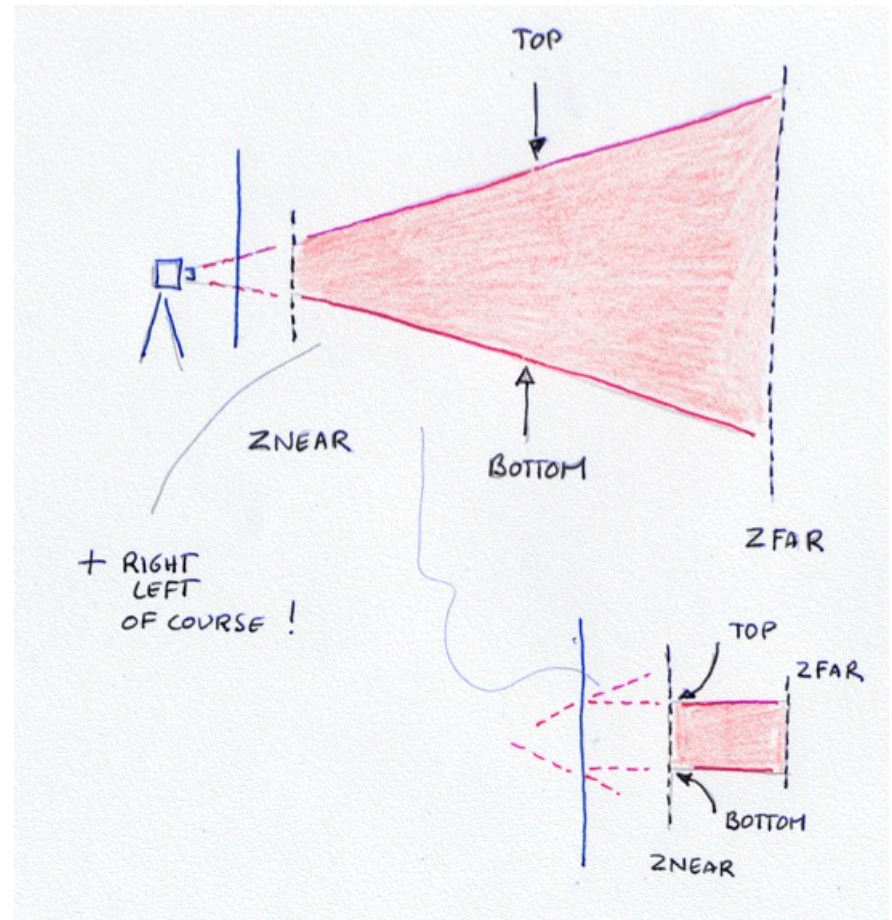 TOP
ZNEAR
BOTTOM
ZFAR
+ RIGHT
LEFT
OF COURSE !
TOP
ZFAR
BOTTOM
ZNEAR